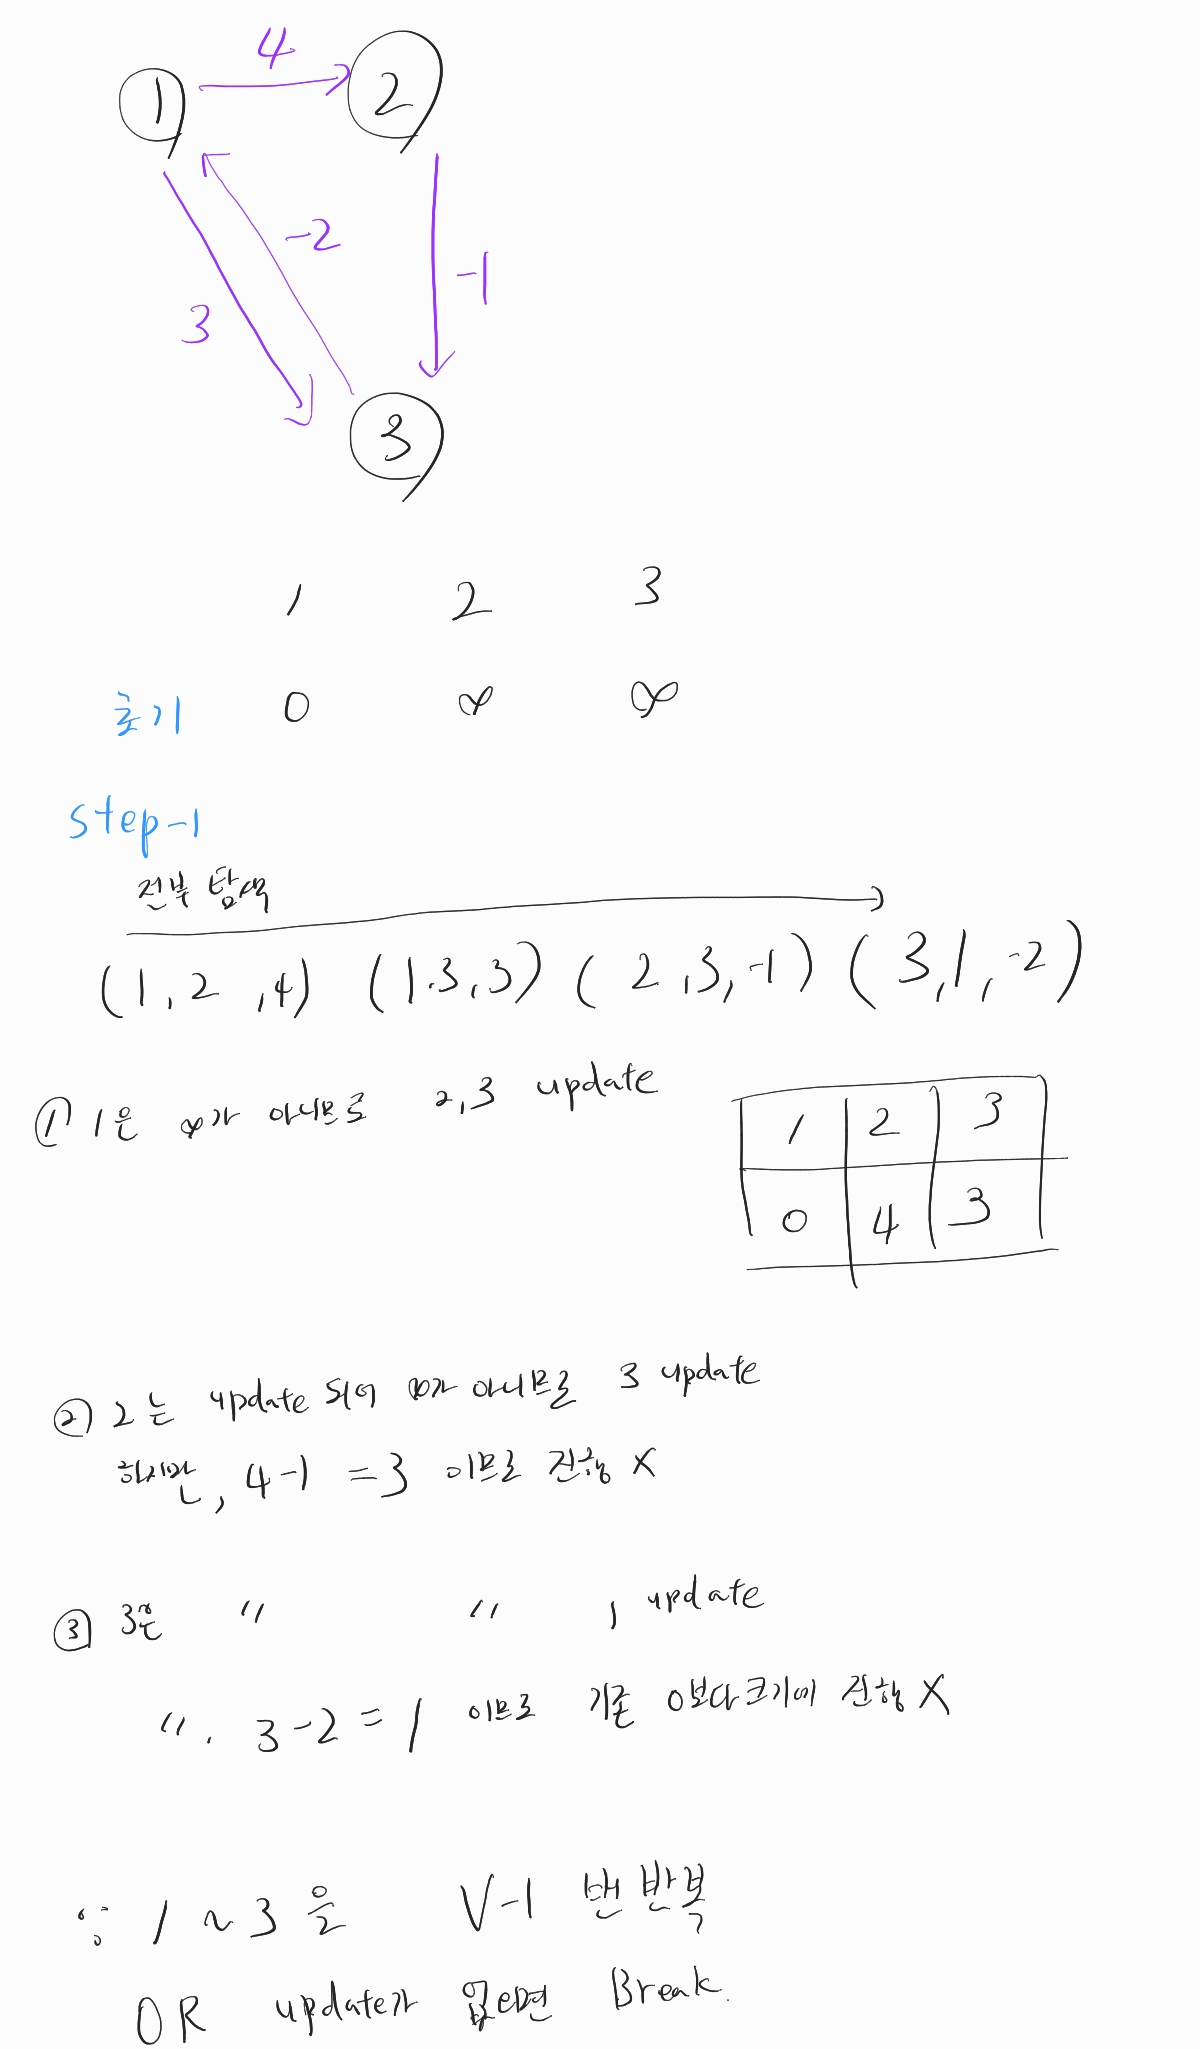 4
① ②
-2
-1
3
③
1 2 3
초기 0 ∞ ∞
step-1
전부 탐색
(1, 2 ,4) (1.3,3) ( 2 ,3,-1) ( 3,1,-2)
① 1은 ∞가 아니므로 2,3 update
1 2 3
0 4 3
② 2는 update 되어 ∞가 아니므로 3 update
하지만, 4-1 =3 이므로 진행 X
③ 3은 〃 〃 1 update
〃. 3-2=1 이므로 기존 0보다 크기에 진행 X
∵ 1 ~ 3 을 V-1 번 반복
OR update가 없다면 Break.